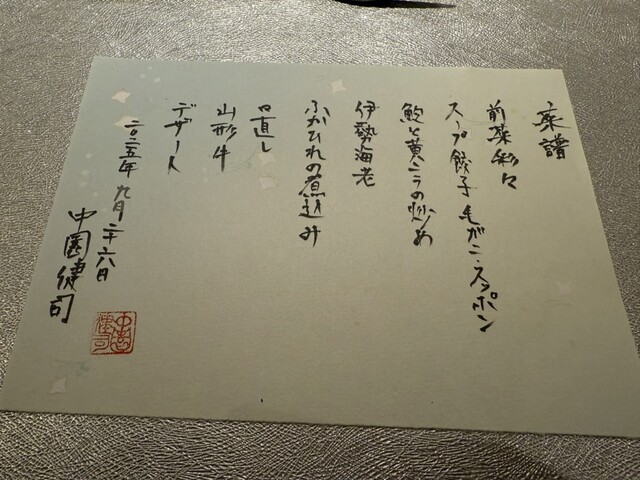 菜譜
前菜彩々
スープ餃子 毛ガニ・スッポン
鮑と黄ニラの炒め
伊勢海老
ふかひれの煮込み
口直し
山形牛
デザート
二〇二五年 九月二十六日
中園健司
中園健司